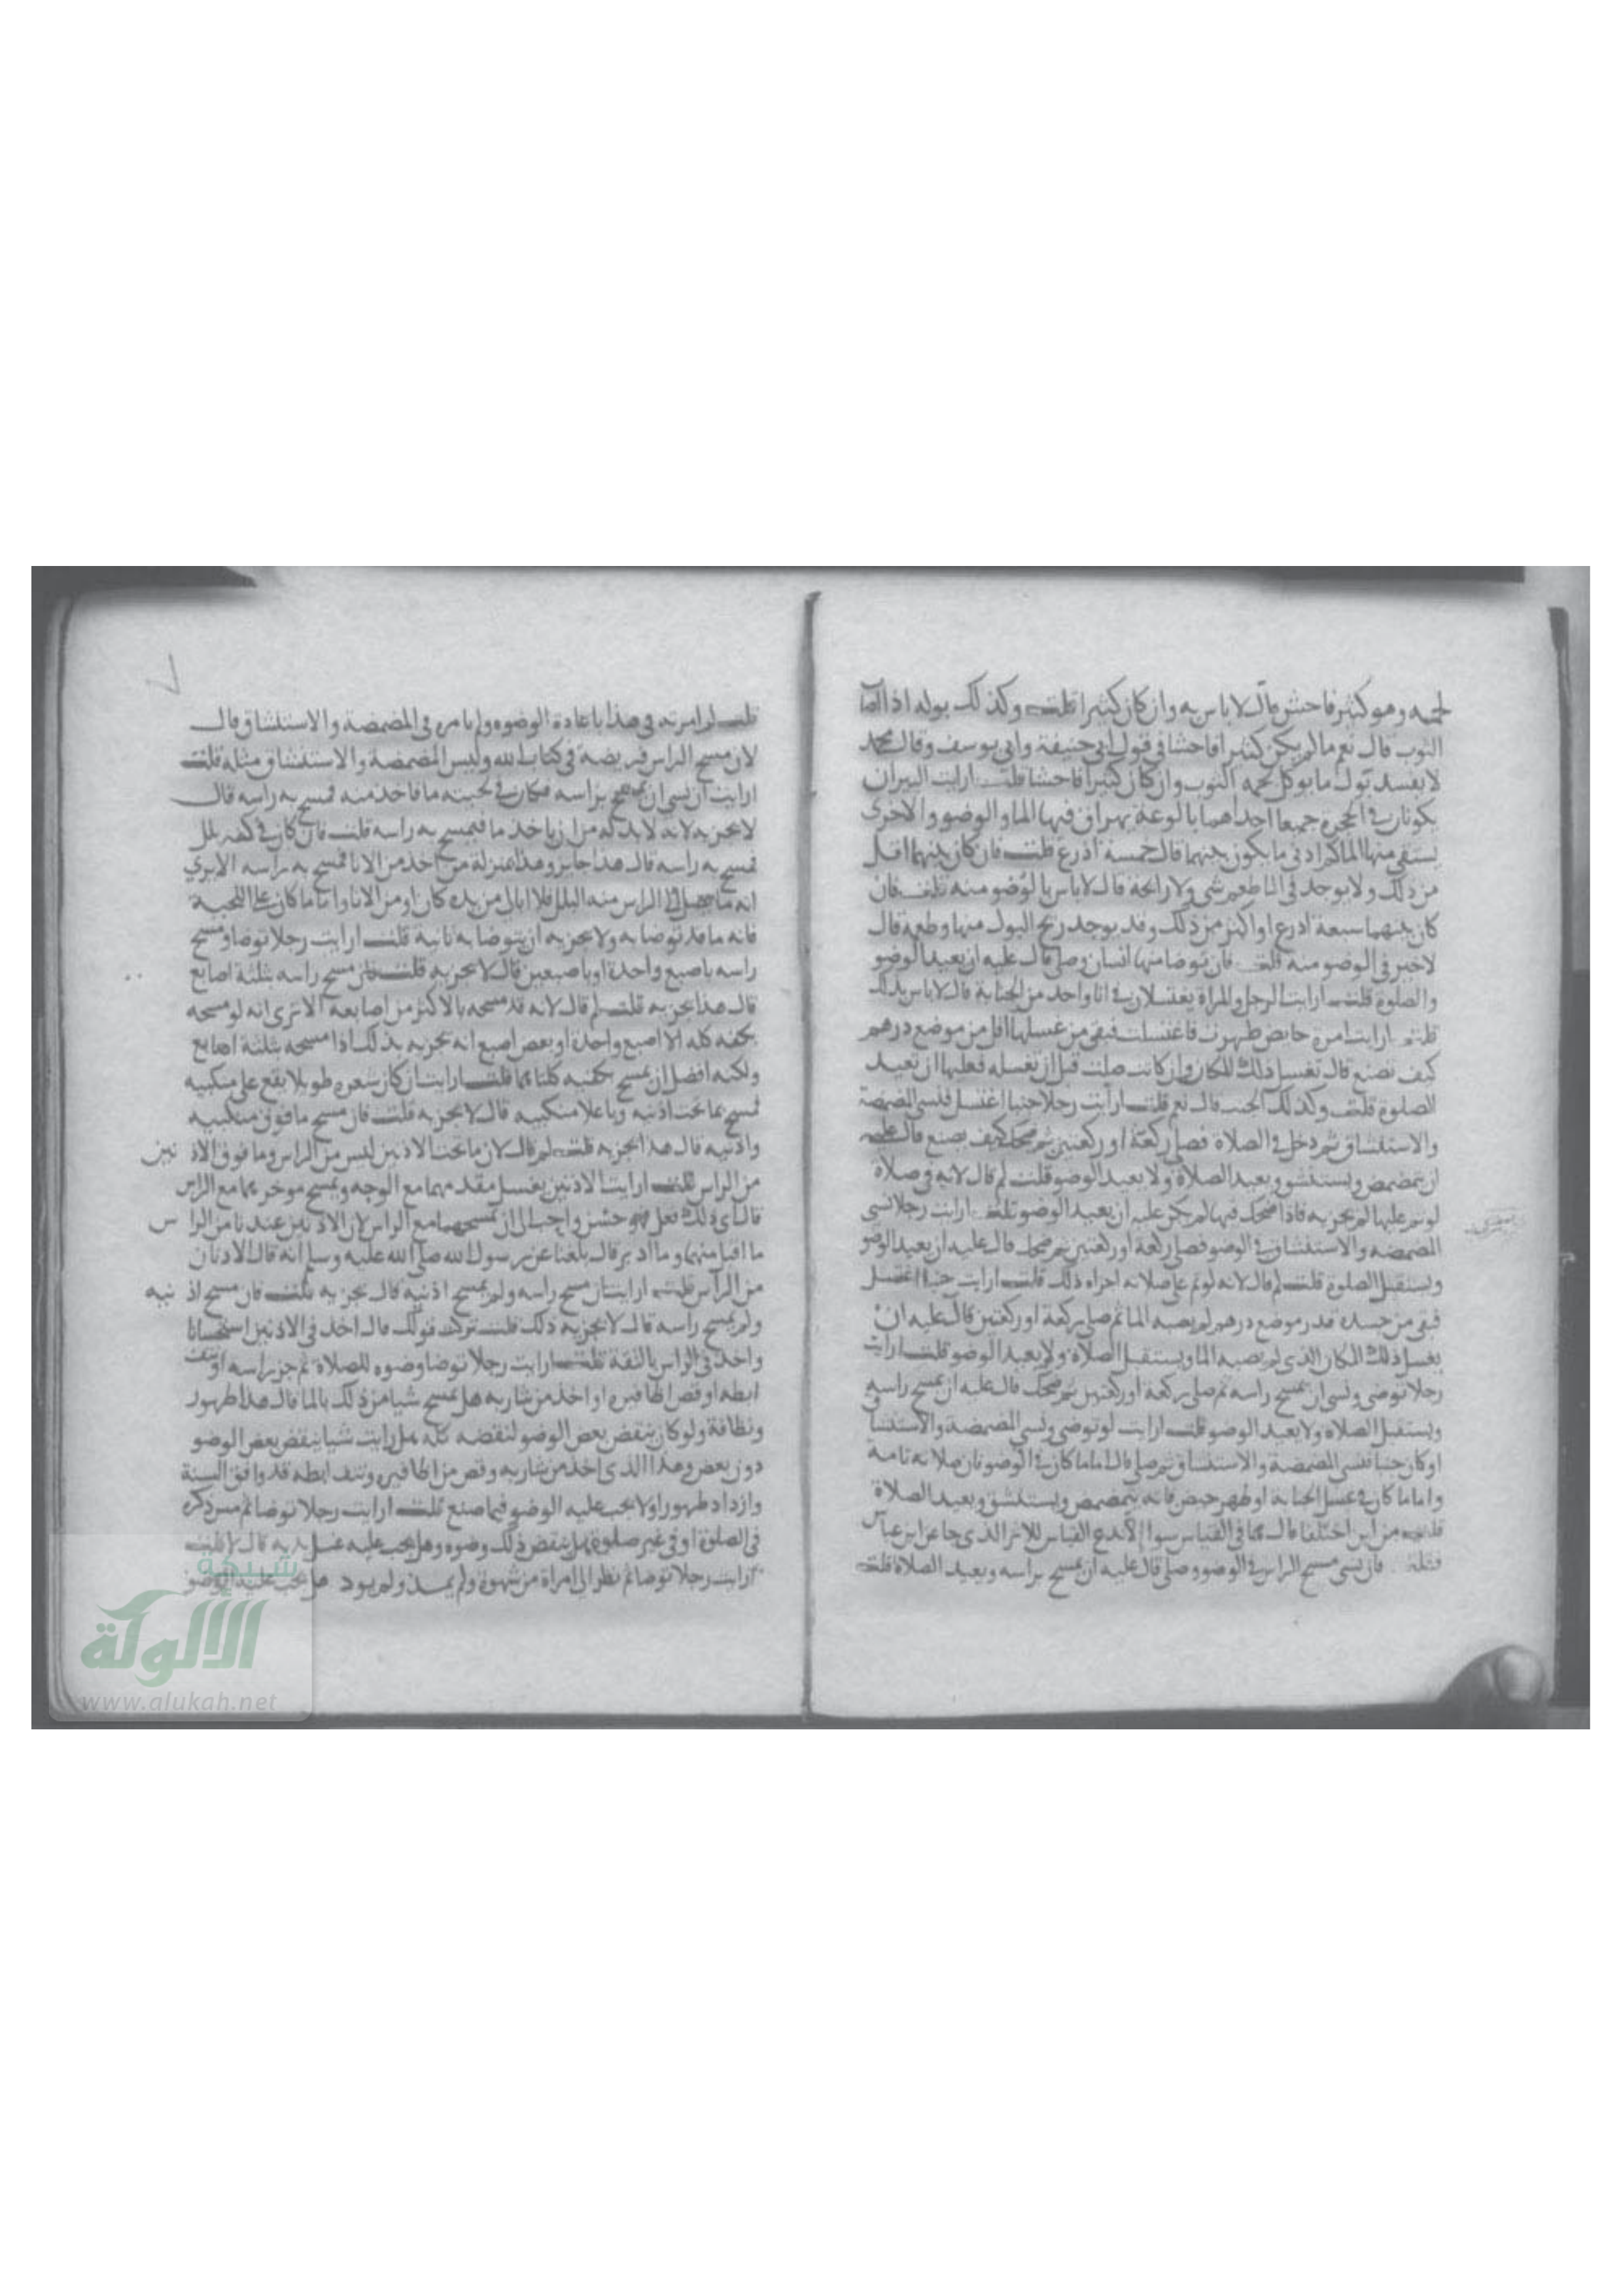 لحمه وهو كثير فاحش قال لا باس به وان كان كثيرا قلت وكذلك بوله اذا اصاب
الثوب قال نعم ما لم يكن كثيرا فاحشا في قول ابي حنيفة وابي يوسف وقال محمد
لا يفسد بول ما يوكل لحمه الثوب وان كان كثيرا فاحشا قلت ارايت البيران
يكونان في الحجرة جميعا احداهما بالوعة يهراق فيها الما والوضو والاخرى
يستقى منها الما كم ادنى ما يكون بينهما قال خمسة اذرع قلت فان كان بينهما اقل
من ذلك ولا يوجد في الما طعم شي ولا رائحة قال لا باس بالوضو منه قلت فان
كان بينهما سبعة اذرع او اكثر من ذلك وقد يوجد ريح البول منها وطعمه قال
لا خير في الوضو منه قلت فان توضا منها انسان وصلى قال عليه ان يعيد الوضو
والصلوة قلت ارايت الرجل والمراة يغتسلان في انا واحد من الجنابة قال لا باس بذلك
قلت ارايت امرة حايض طهرت فاغتسلت فبقي من غسلها اقل من موضع درهم
كيف تصنع قال تغسل ذلك المكان وان كانت صلت قبل ان تغسله فعليها ان تعيد
الصلوة قلت وكذلك الجنب قال نعم قلت ارايت رجلا جنبا اغتسل فنسي المضمضة
والاستنشاق ثم دخل في الصلاة فصلى ركعة او ركعتين ثم ضحك كيف يصنع قال عليه
ان يتمضمض ويستنشق ويعيد الصلاة ولا يعيد الوضو قلت لم قال لانه في صلاة
لو تم عليها لم يجزيه فاذا ضحك فيها لم يكن عليه ان يعيد الوضو قلت ارايت رجلا نسي
المضمضة والاستنشاق في الوضو فصلى ركعة او ركعتين ثم ضحك قال عليه ان يعيد الوضو
ويستقبل الصلوة قلت لم قال لانه لو تم على صلاته اجزاه ذلك قلت ارايت جنبا اغتسل
فبقي من جسده قدر موضع درهم لم يصبه الما ثم صلى ركعة او ركعتين قال عليه ان
يغسل ذلك المكان الذي لم يصبه الما ويستقبل الصلاة ولا يعيد الوضو قلت ارايت
رجلا توضى ونسي ان يمسح راسه ثم صلى ركعة او ركعتين ثم ضحك قال عليه ان يمسح راسه
ويستقبل الصلاة ولا يعيد الوضو قلت ارايت لو توضى ونسي المضمضة والاستنشاق
او كان جنبا فنسي المضمضة والاستنشاق ثم صلى قال اما ما كان في الوضو فان صلاته تامة
واما ما كان في غسل الجنابة او طهر حيض فانه يتمضمض ويستنشق ويعيد الصلاة
قلت من اين اختلفا قال هما في القياس سوا الا ندع القياس للاثر الذي جا عن ابن عباس
قلت فان نسي مسح الراس في الوضو وصلى قال عليه ان يمسح براسه ويعيد الصلاة قلت
قلت لم امرته في هذا باعادة الوضوء ولم يامره في المضمضة والاستنشاق قال
لان مسح الراس فريضة في كتاب الله وليس المضمضة والاستنشاق مثله قلت
ارايت ان نسي ان يمسح براسه فكان في لحيته ما فاخذ منه فمسح به راسه قال
لا يجزيه لانه لا بد له من ان ياخذ ما فيمسح به راسه قلت فان كان في كفه بلل
فمسح به راسه قال هذا جايز وهذا بمنزلة من اخذ من الانا فمسح به راسه الا يرى
انه ما يصل الى الراس منه البلل فلا ابالي من يده كان او من الانا واما ما كان على اللحية
فانه ما قد توضا به ولا يجزيه ان يتوضا به ثانية قلت ارايت رجلا توضا ومسح
راسه باصبع واحدة او باصبعين قال لا يجزيه قلت فان مسح راسه بثلثة اصابع
قال هذا يجزيه قلت لم قال لانه قد مسحه بالاكثر من اصابعه الا ترى انه لو مسحه
بكفه كله الا اصبع واحدة او بعض اصبع انه يجزيه بذلك اذا مسحه بثلثة اصابع
ولكنه افضل ان يمسح بكفيه كلتاهما قلت ارايت ان كان شعره طويلا يقع على منكبيه
فمسح بما تحت اذنيه وباعلا منكبيه قال لا يجزيه قلت فان مسح ما فوق منكبيه
واذنيه قال هذا يجزيه قلت لم قال لان ما تحت الاذنين ليس من الراس وما فوق الاذنين
من الراس قلت ارايت الاذنين يغسل مقدمهما مع الوجه ويمسح موخرهما مع الراس
قال اي ذلك فعل فهو حسن واحب الي ان يمسحهما مع الراس لان الاذنين عندنا من الراس
ما اقبل منهما وما ادبر قال بلغنا عن رسول الله صلى الله عليه وسلم انه قال الاذنان
من الراس قلت ارايت ان مسح راسه ولم يمسح اذنيه قال يجزيه قلت فان مسح اذنيه
ولم يمسح راسه قال لا يجزيه ذلك قلت تركت قولك قال اخذ في الاذنين استحسانا
واخذ في الراس بالثقة قلت ارايت رجلا توضا وضوه للصلاة ثم جز راسه او نتف
ابطه او قص اظافيره او اخذ من شاربه هل يمسح شيا من ذلك بالما قال هذا طهور
ونظافة ولو كان ينقض بعض الوضو لنقضه كله هل رايت شيا ينقض بعض الوضو
دون بعض وهذا الذي اخذ من شاربه وقص من اظافيره ونتف ابطه قد وافق السنة
وازداد طهورا ولا يجب عليه الوضو فيما صنع قلت ارايت رجلا توضا ثم مس ذكره
في الصلوة او في غير صلوة هل ينقض ذلك وضوه وهل يجب عليه غسل يديه قال لا قلت
ارايت رجلا توضا ثم نظر الى امراة من شهوة ولم يمذ ولم يود هل يجب عليه الوضو
شبكة
الألوكة
www.alukah.net